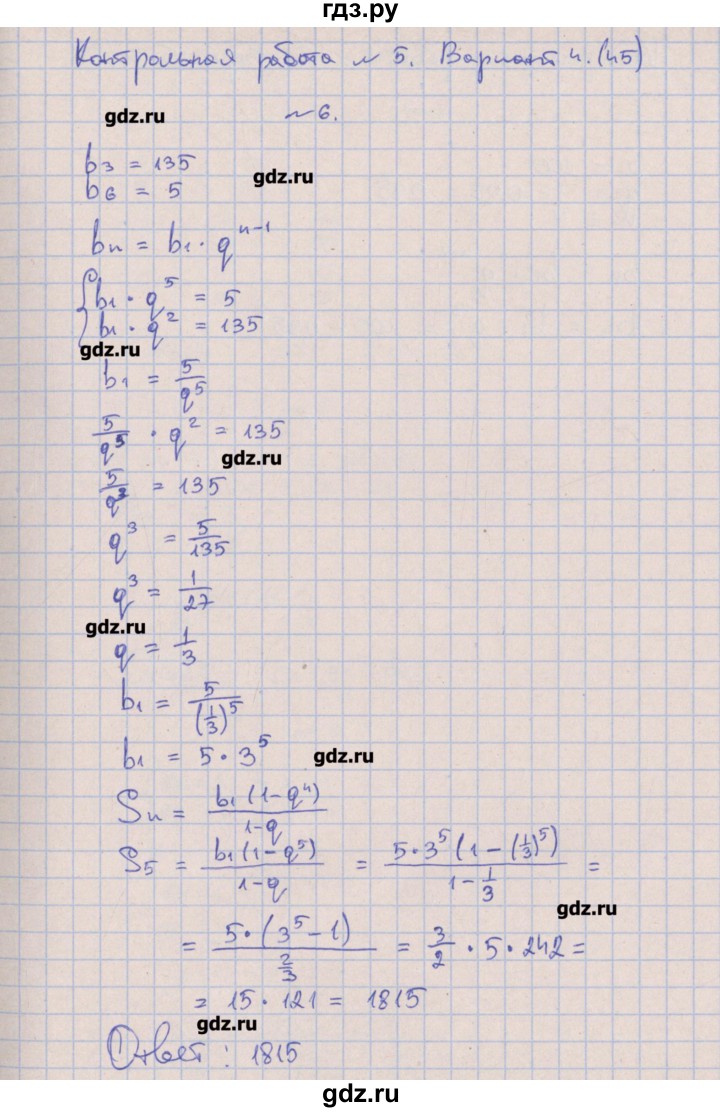 гдз.ру
Контрольная работа № 5. Вариант 4. (45)
gdz.ru № 6.
b₃ = 135
gdz.ru
b₆ = 5
bₙ = b₁ · qⁿ⁻¹
{ b₁ · q⁵ = 5
b₁ · q² = 135
gdz.ru
b₁ = 5/q⁵
5/q⁵ · q² = 135
gdz.ru
5/q³ = 135
q³ = 5/135
q³ = 1/27
gdz.ru
q = 1/3
b₁ = 5/(1/3)⁵
b₁ = 5 · 3⁵ gdz.ru
Sₙ = b₁(1-qⁿ)/1-q
S₅ = b₁(1-q⁵)/1-q = 5·3⁵(1-(1/3)⁵)/1-1/3 =
gdz.ru
= 5·(3⁵-1)/(2/3) = 3/2 · 5 · 242 =
= 15 · 121 = 1815
gdz.ru
Ответ: 1815
gdz.ru